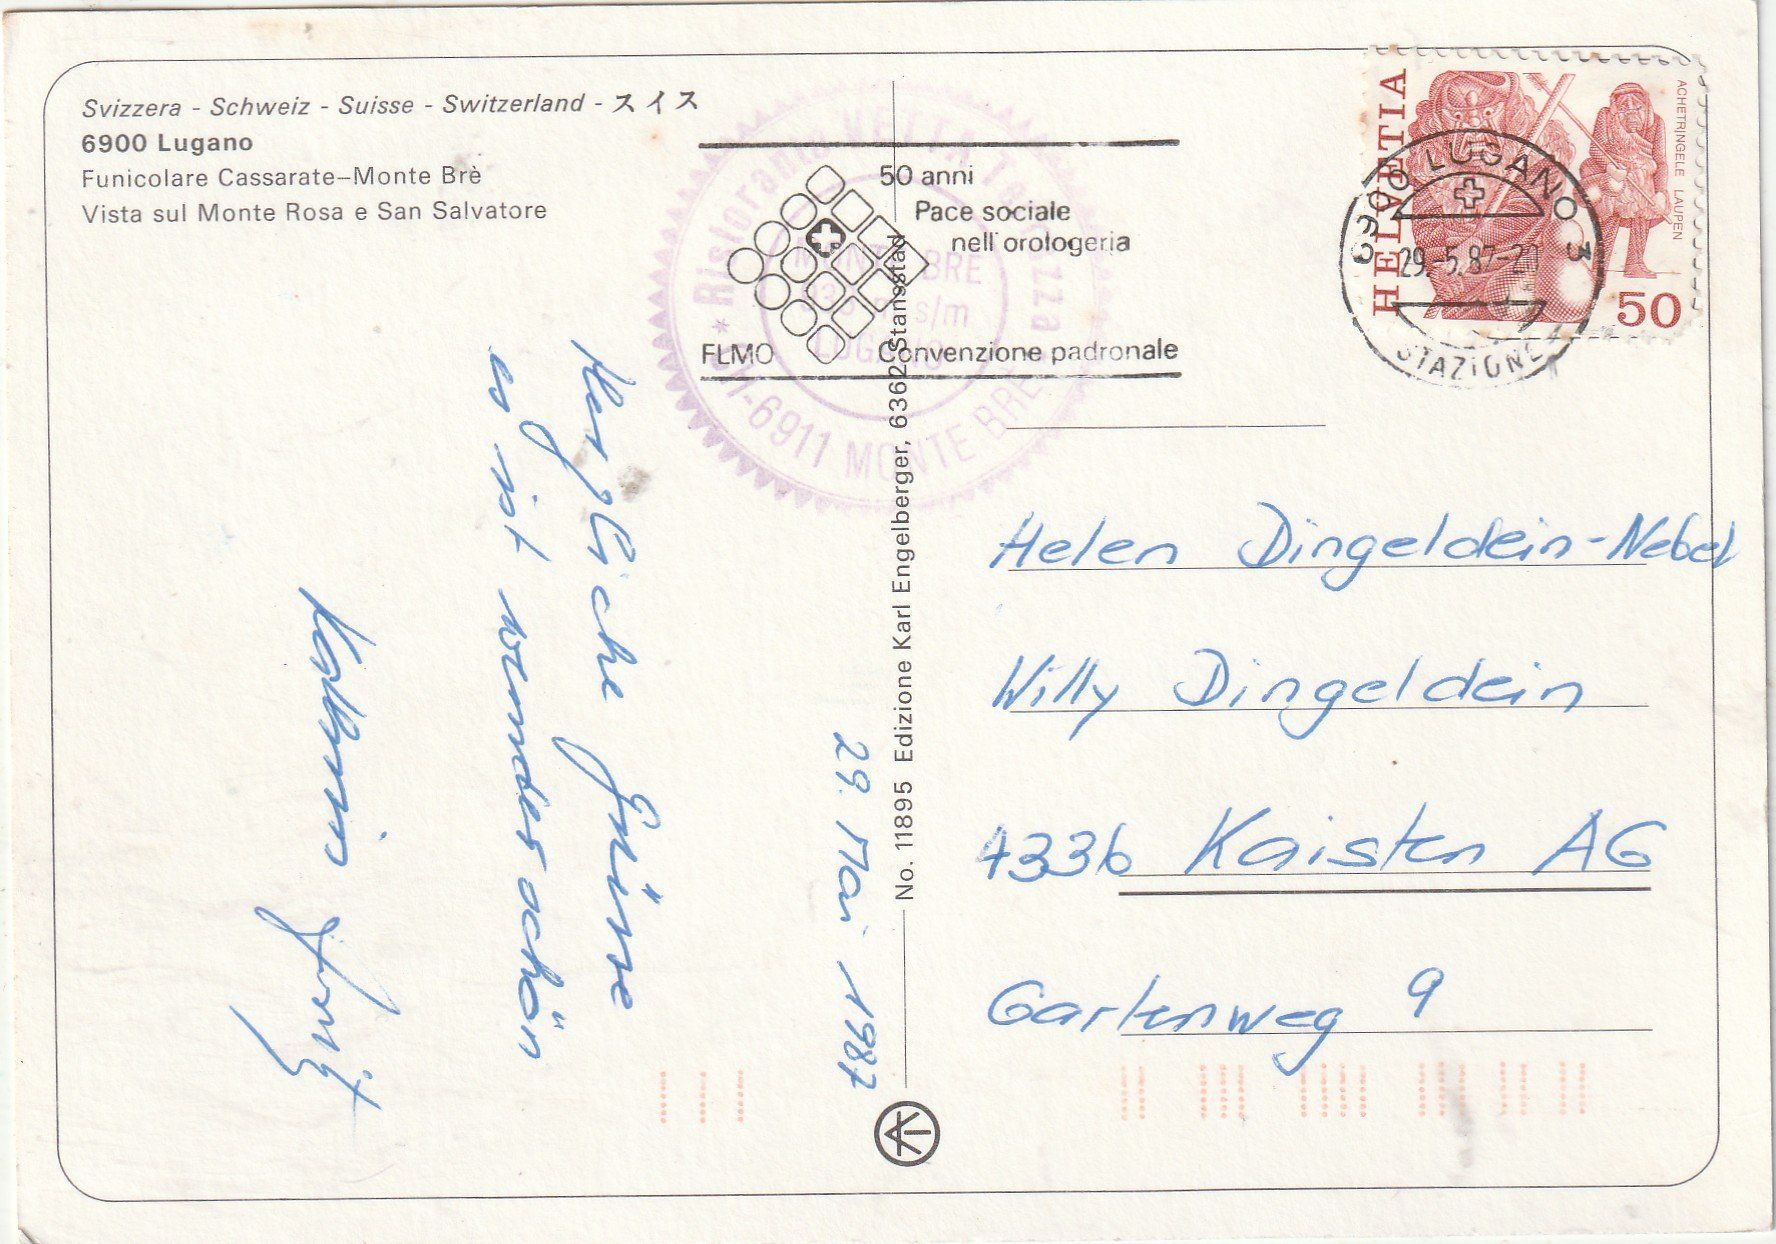 Svizzera - Schweiz - Suisse - Switzerland - スイス
6900 Lugano
Funicolare Cassarate–Monte Brè
Vista sul Monte Rosa e San Salvatore
50 anni
Pace sociale
nell'orologeria
FLMO Convenzione padronale
Ristorante VETTA
MONTE BRE
s/m
LUGANO
-6911 MONTE BRE
HELVETIA
ACHETRINGELE LAUPEN
50
6900 LUGANO 3
29.-5.87-20
STAZIONE
29. Mai 1987
Herzliche Grüsse
es ist wunderschön
No. 11895 Edizione Karl Engelberger, 6362 Stansstad
Helen Dingeldein-Nebel
Willy Dingeldein
4336 Kaisten AG
Gartenweg 9